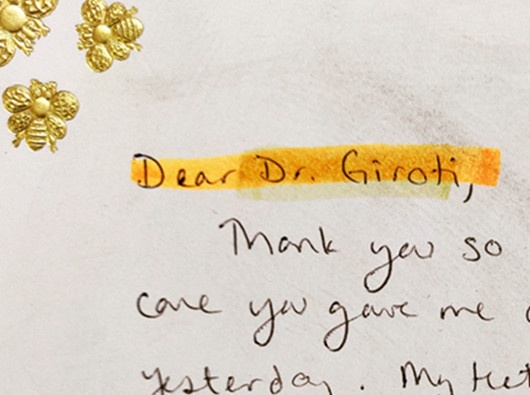 Dear Dr. Giroti,
Thank you so
care you gave me
yesterday. My